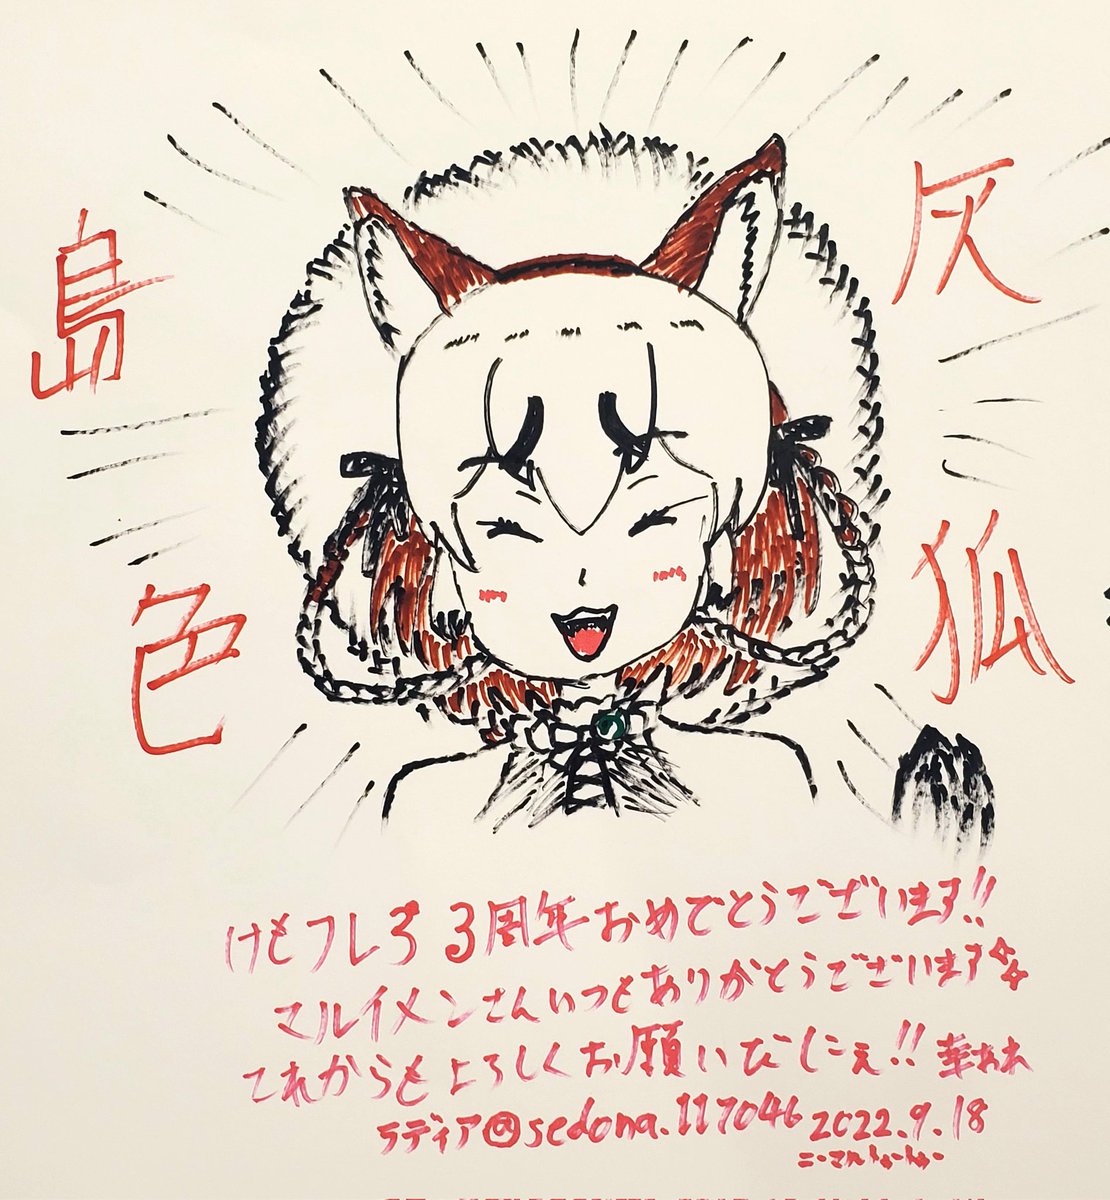 島
色
灰
狐
けもフレ3 3周年おめでとうございます!!
マルイメンさんいつもありがとうございます
これからもよろしくお願い
ラディア@sedona.117046 2022.9.18